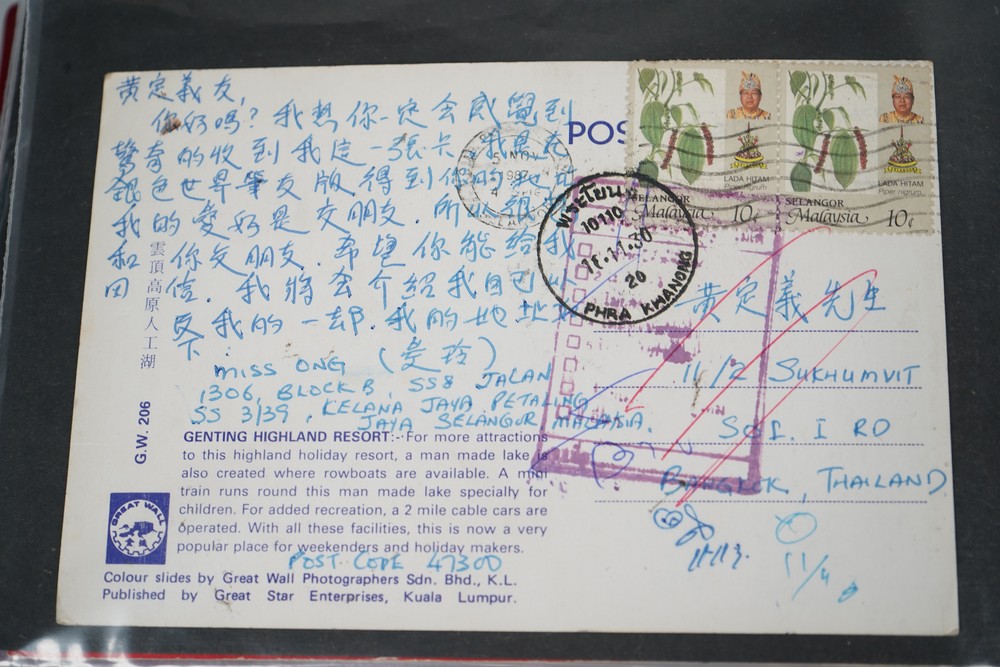 黄定義友,
你好嗎? 我想你一定会感覺到
驚奇的收到我這一張卡. 我是在
銀色世界筆友版得到你的地
我的愛好是交朋友. 所 很
和你交朋友. 希望你能給我
回信. 我將会介紹我自己
及我的一切. 我的地址
下:
MISS ONG (愛玲)
1306, BLOCK B, SS8 JALAN
SS 3/39, KELANA JAYA PETALING
JAYA SELANGOR MALAYSIA.
GENTING HIGHLAND RESORT:- For more attractions
to this highland holiday resort, a man made lake is
also created where rowboats are available. A mini
train runs round this man made lake specially for
children. For added recreation, a 2 mile cable cars are
operated. With all these facilities, this is now a very
popular place for weekenders and holiday makers.
POST CODE 47300
Colour slides by Great Wall Photographers Sdn. Bhd., K.L.
Published by Great Star Enterprises, Kuala Lumpur.
雲頂高原人工湖
G.W. 206
GREAT WALL
POS
5 NOV
1987
LADA HITAM
Piper nigrum
SELANGOR
Malaysia 10¢
LADA HITAM
Piper nigrum
SELANGOR
Malaysia 10¢
พระโขนง
10110
30
20
PHRA KHANONG
黄定義先生
11/2 SUKHUMVIT
SOI. I RD
BANGKOK, THAILAND